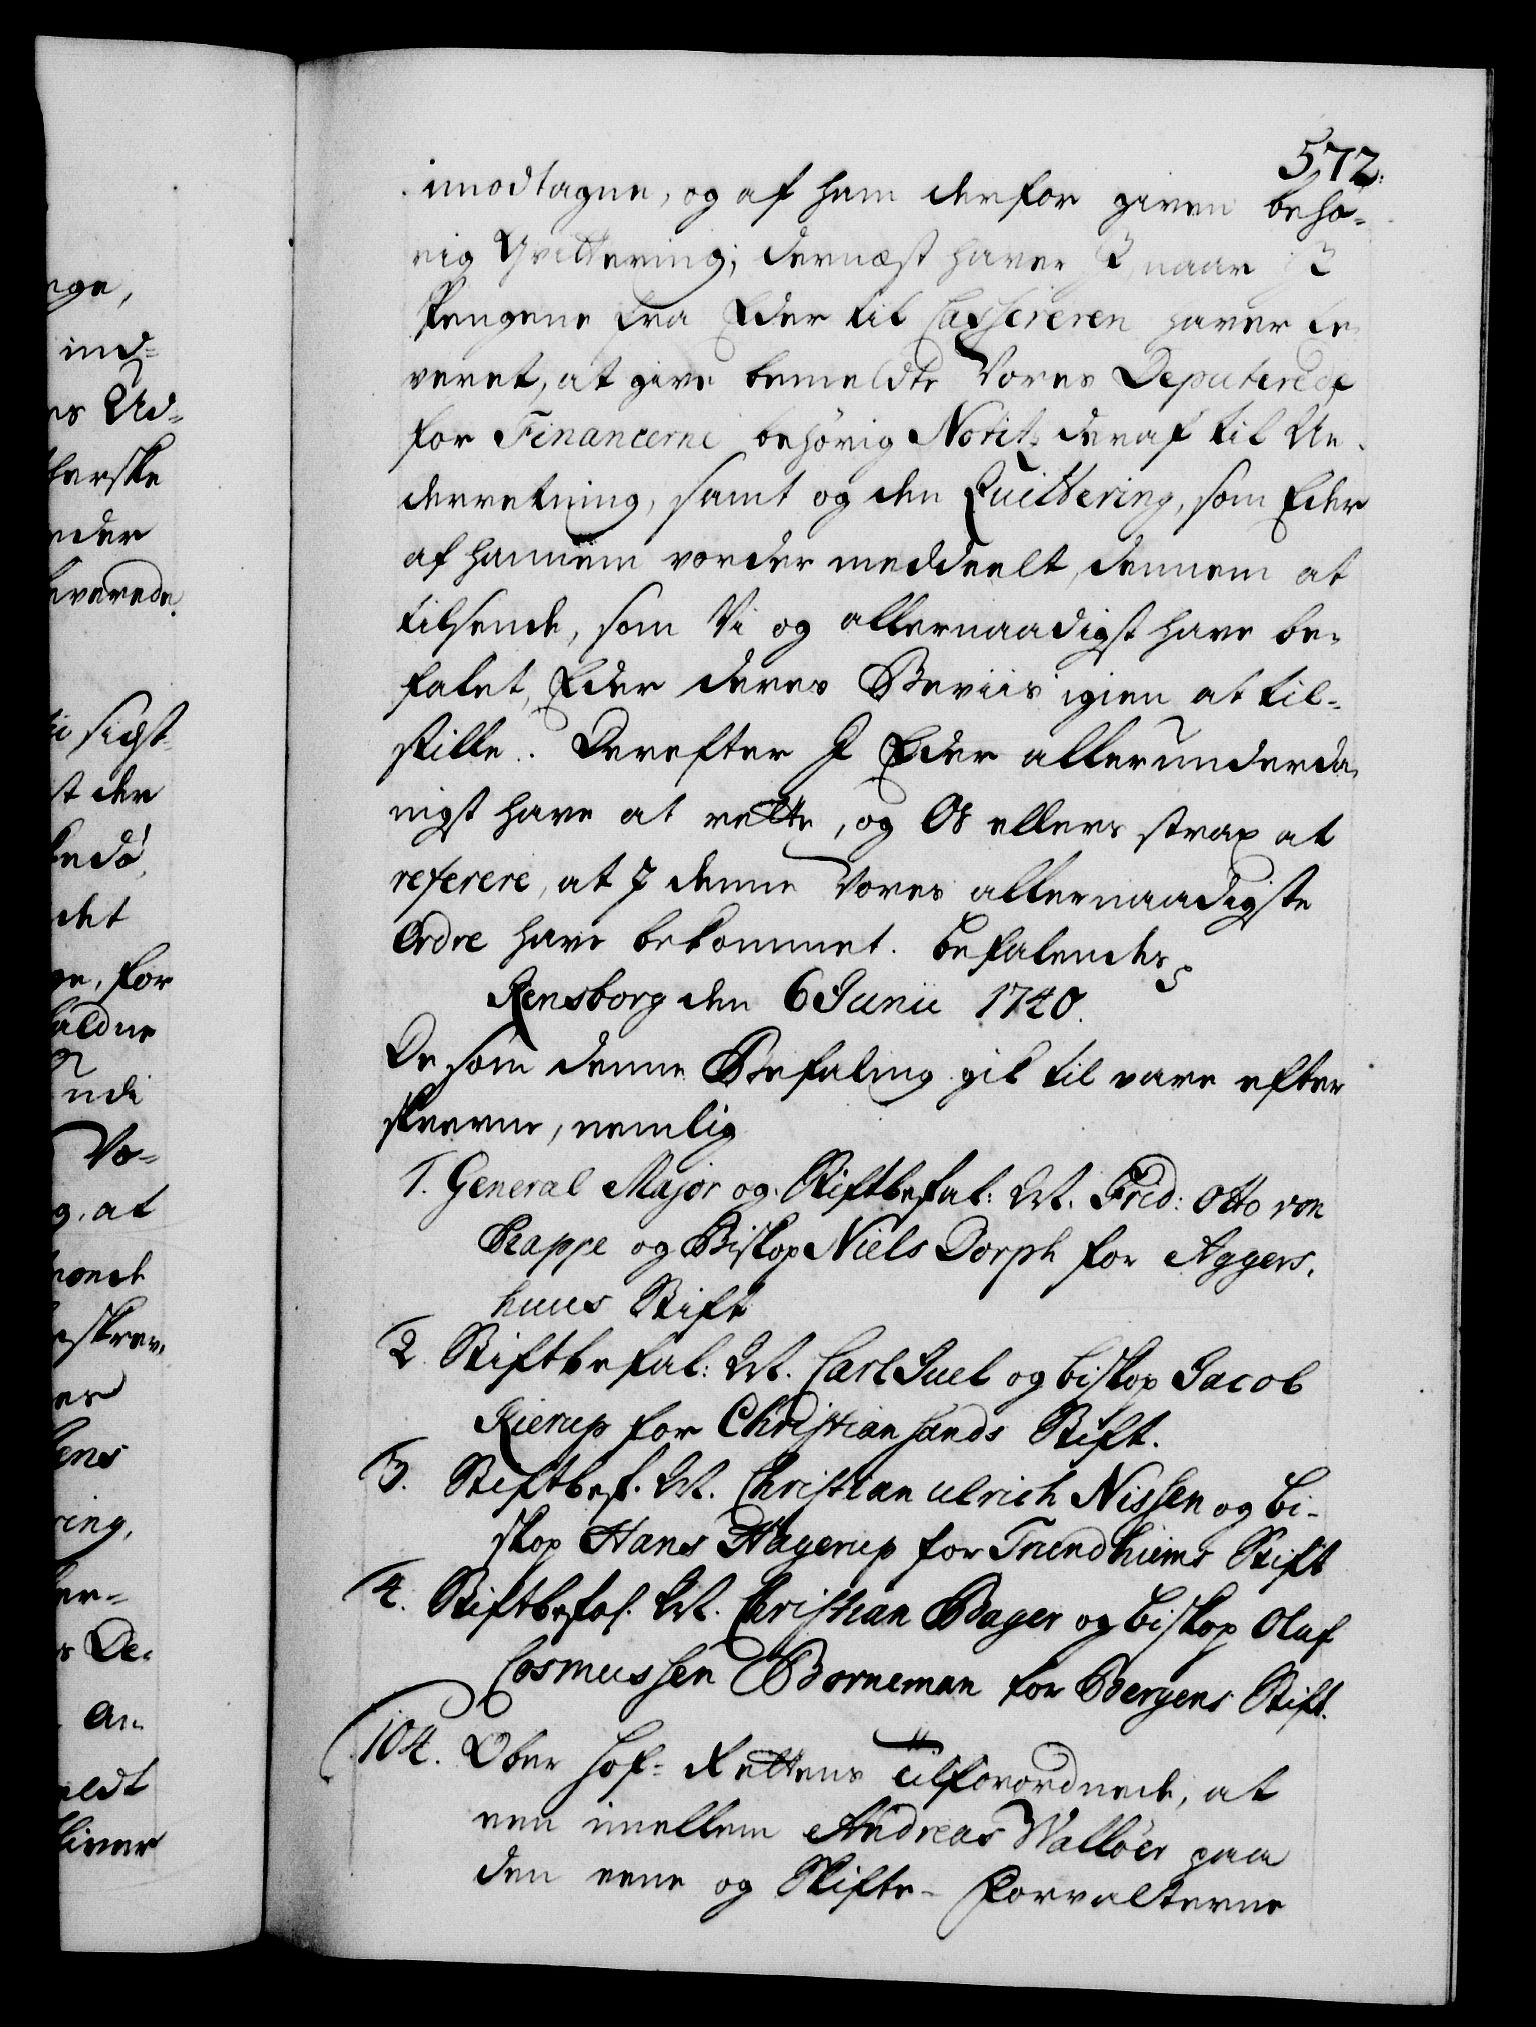 572.
imodtagne, og af ham derfor given behø-
rig Qvittering; dernæst haver I, naar I
Pengene fra Eder til Cassereren haver le-
veret, at give bemeldte Vores Deputerede
for Financerne behørig Notitz deraf til Un-
derretning, samt og den Quittering, som Eder
af hannem vorder meddeelt, dennem at
tilsende, som Vi og allernaadigst have be-
falet, Eder deres Beviis igien at til-
stille. Derefter I Eder allerunderda-
nigst have at rette, og Os ellers strax at
referere, at I denne Vores allernaadigste
Ordre have bekommet. Befalendes
Rensborg den 6 Junii 1740.
De som denne Befaling gik til vare efter
skrevne, nemlig
1. General Major og Stiftbefal: M. Frid: Otto von
Rappe og Biskop Niels Dorph for Aggers-
huus Stift
2. Stiftbefal: M. Carl Juel og biskop Jacob
Kierup for Christiansands Stift.
3. Stiftbef. M. Christian Ulrich Nissen og bi-
skop Hans Hagerup for Trundhiems Stift
4. Stiftbefal. M. Christian Bager og biskop Oluf
Cosmussen Borneman for Bergens Stift.
104. Ober Hof-Rettens Tilforordnede, at
een imellem Andreas Walløer paa
den eene og Skifte-Forvalterne
nge,
ind-
es Ud-
herske
nder
everede
sidst-
st der
det
ge, for
holdne
udi
Vo-
g, at
er
ring,
er-
De-
An-
eldt
bliver